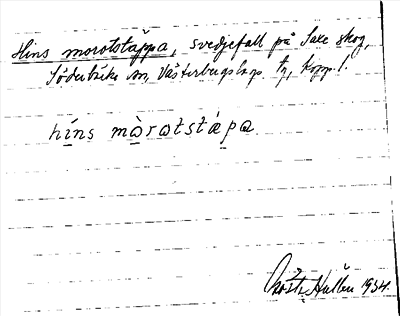 Hins morotstäppa, svedjefall på Saxe skog,
Söderbärke sn, Västerbergslags tg, Kopp. l.
hins mòrotstápa
Hultén 1934.